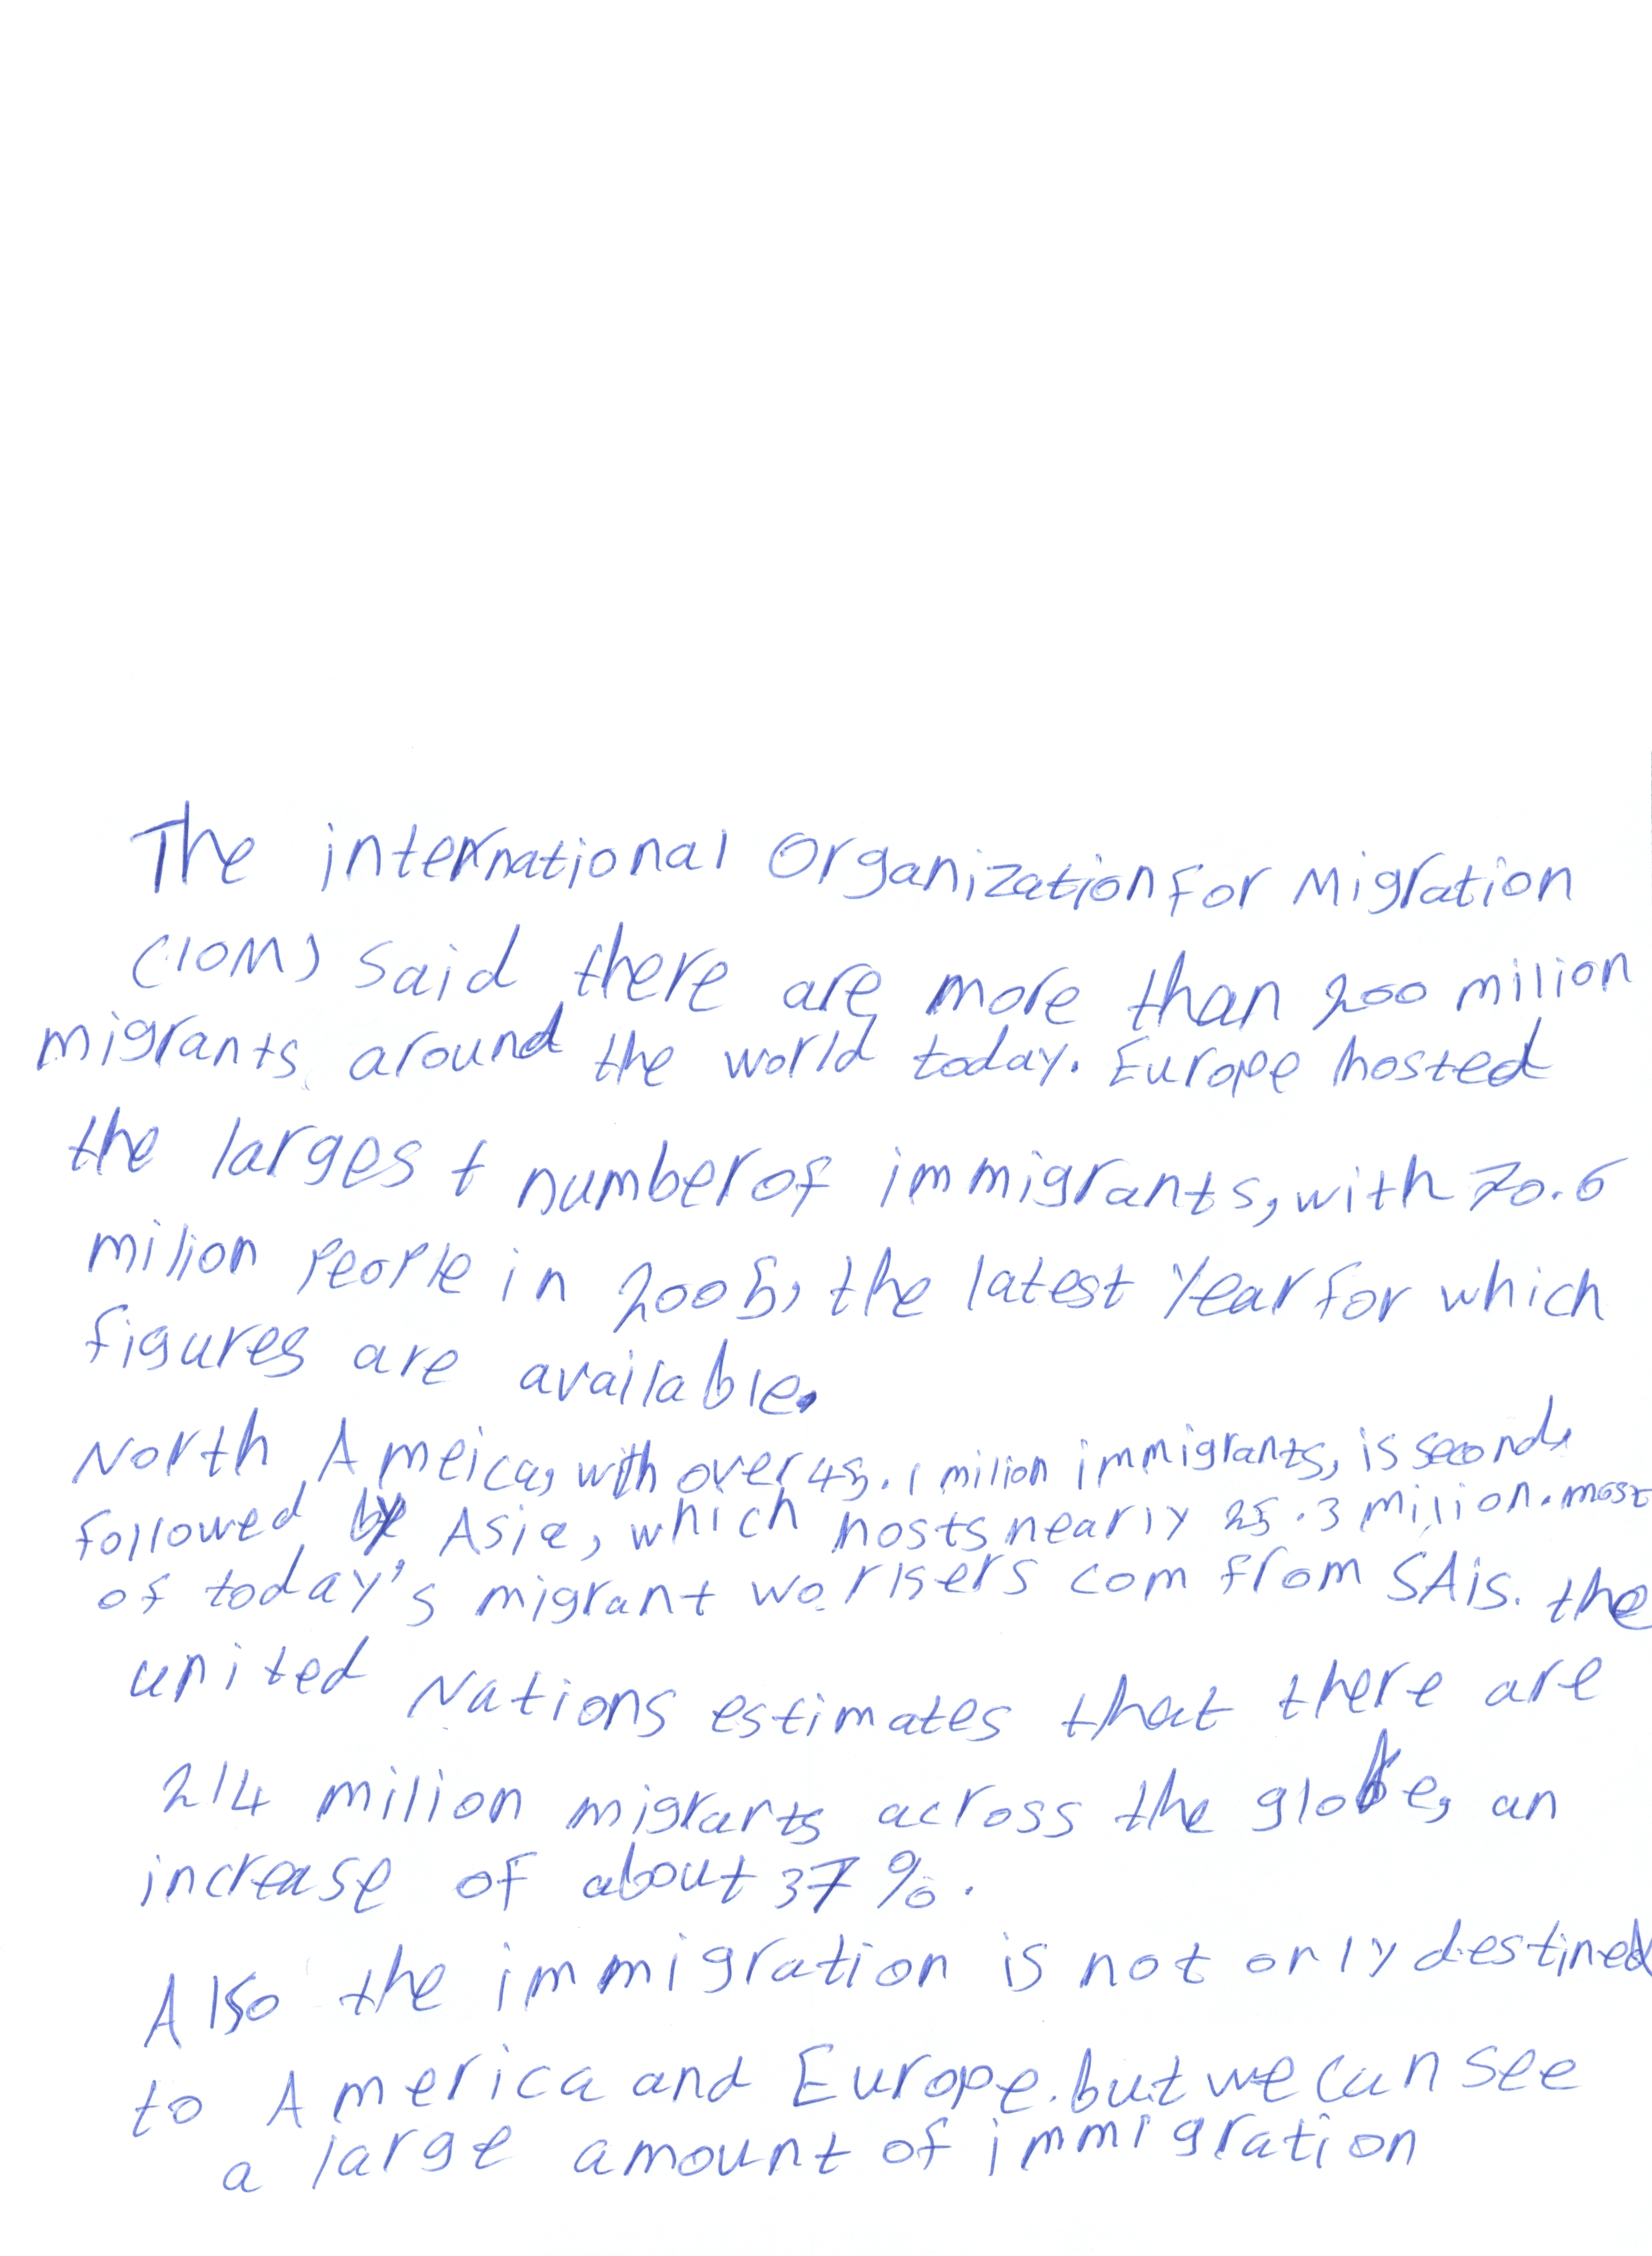 The international Organization for Migration
(IOM) said there are more than 200 milion
migrants around the world today. Europe hosted
the largest number of immigrants, with 70.6
milion people in 2005, the latest year for which
figures are available.
North Ameica, with over 45.1 milion immigrants, is second,
followed by Asia, which hosts nearly 25.3 milion. most
of today's migrant workers com from SAis. the
united Nations estimates that there are
214 milion migrarts across the globe, an
increase of about 37%.
Also the immigration is not only destined
to America and Europe. but we can see
a large amount of immigration